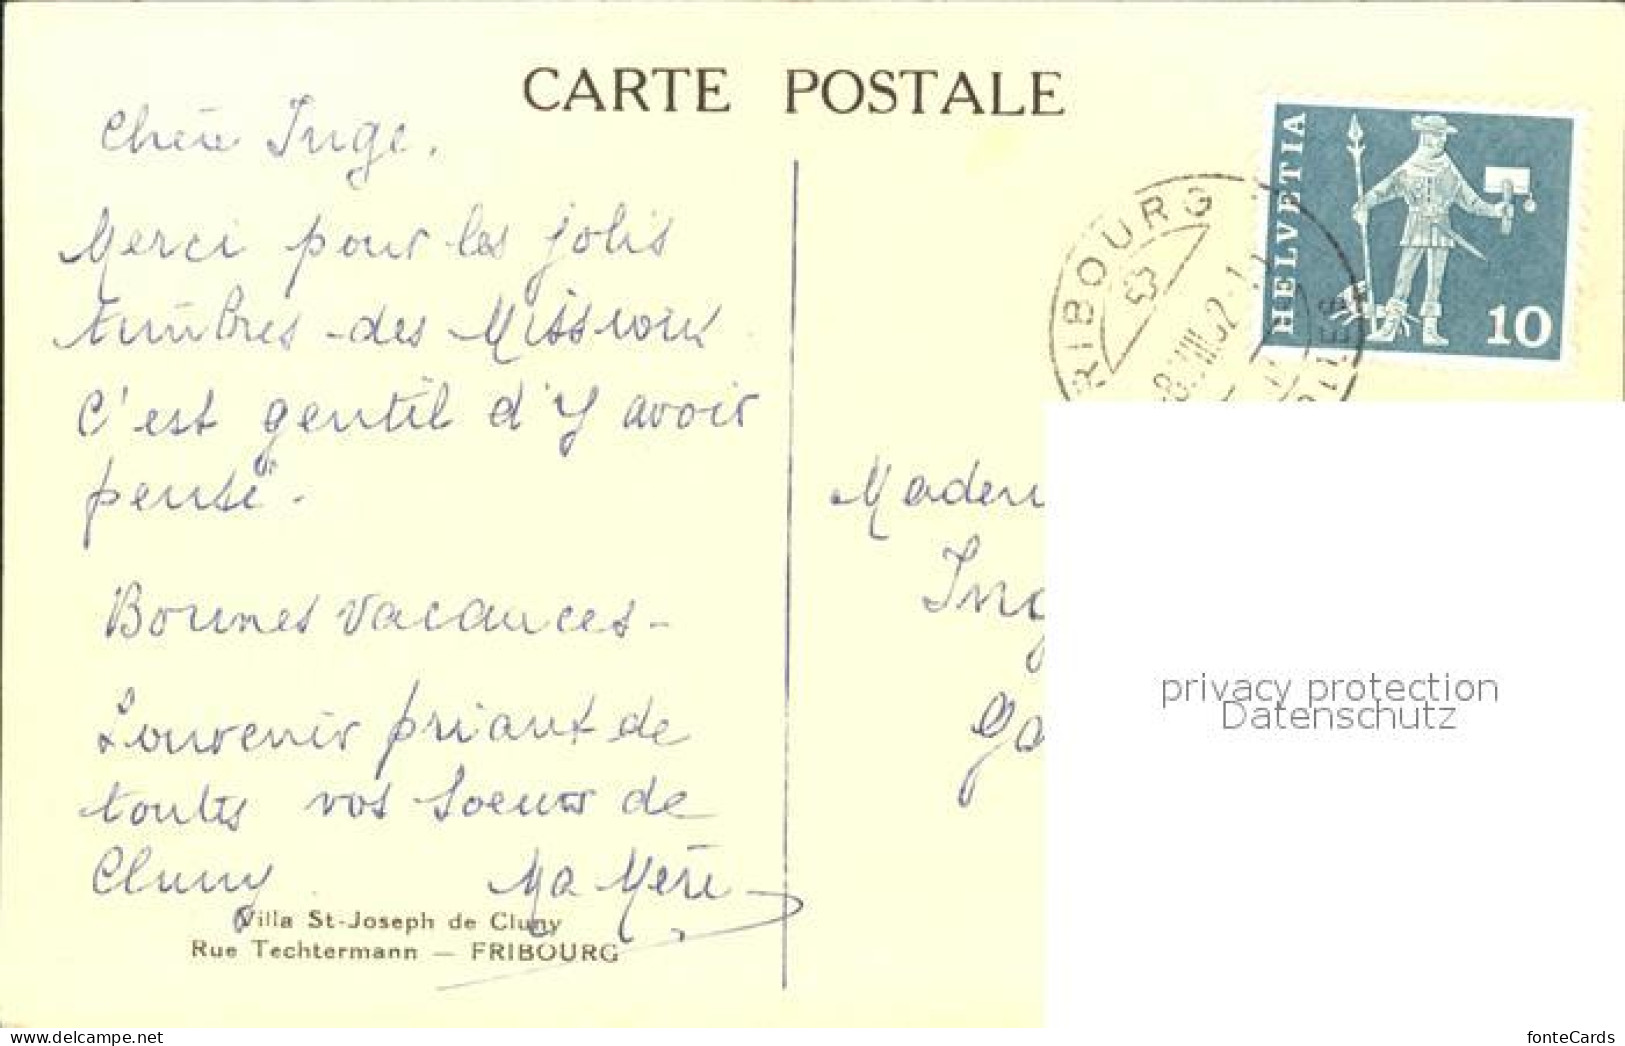 CARTE POSTALE
Chère Inge.
Merci pour les jolis
timbres des Missions
C'est gentil d'y avoir
pensé.
Bonnes vacances -
Souvenir priant de
toutes vos Soeurs de
Cluny Ma Mère
Villa St-Joseph de Cluny
Rue Techtermann — FRIBOURG
HELVETIA
10
FRIBOURG
privacy protection
Datenschutz
www.delcampe.net
fonteCards